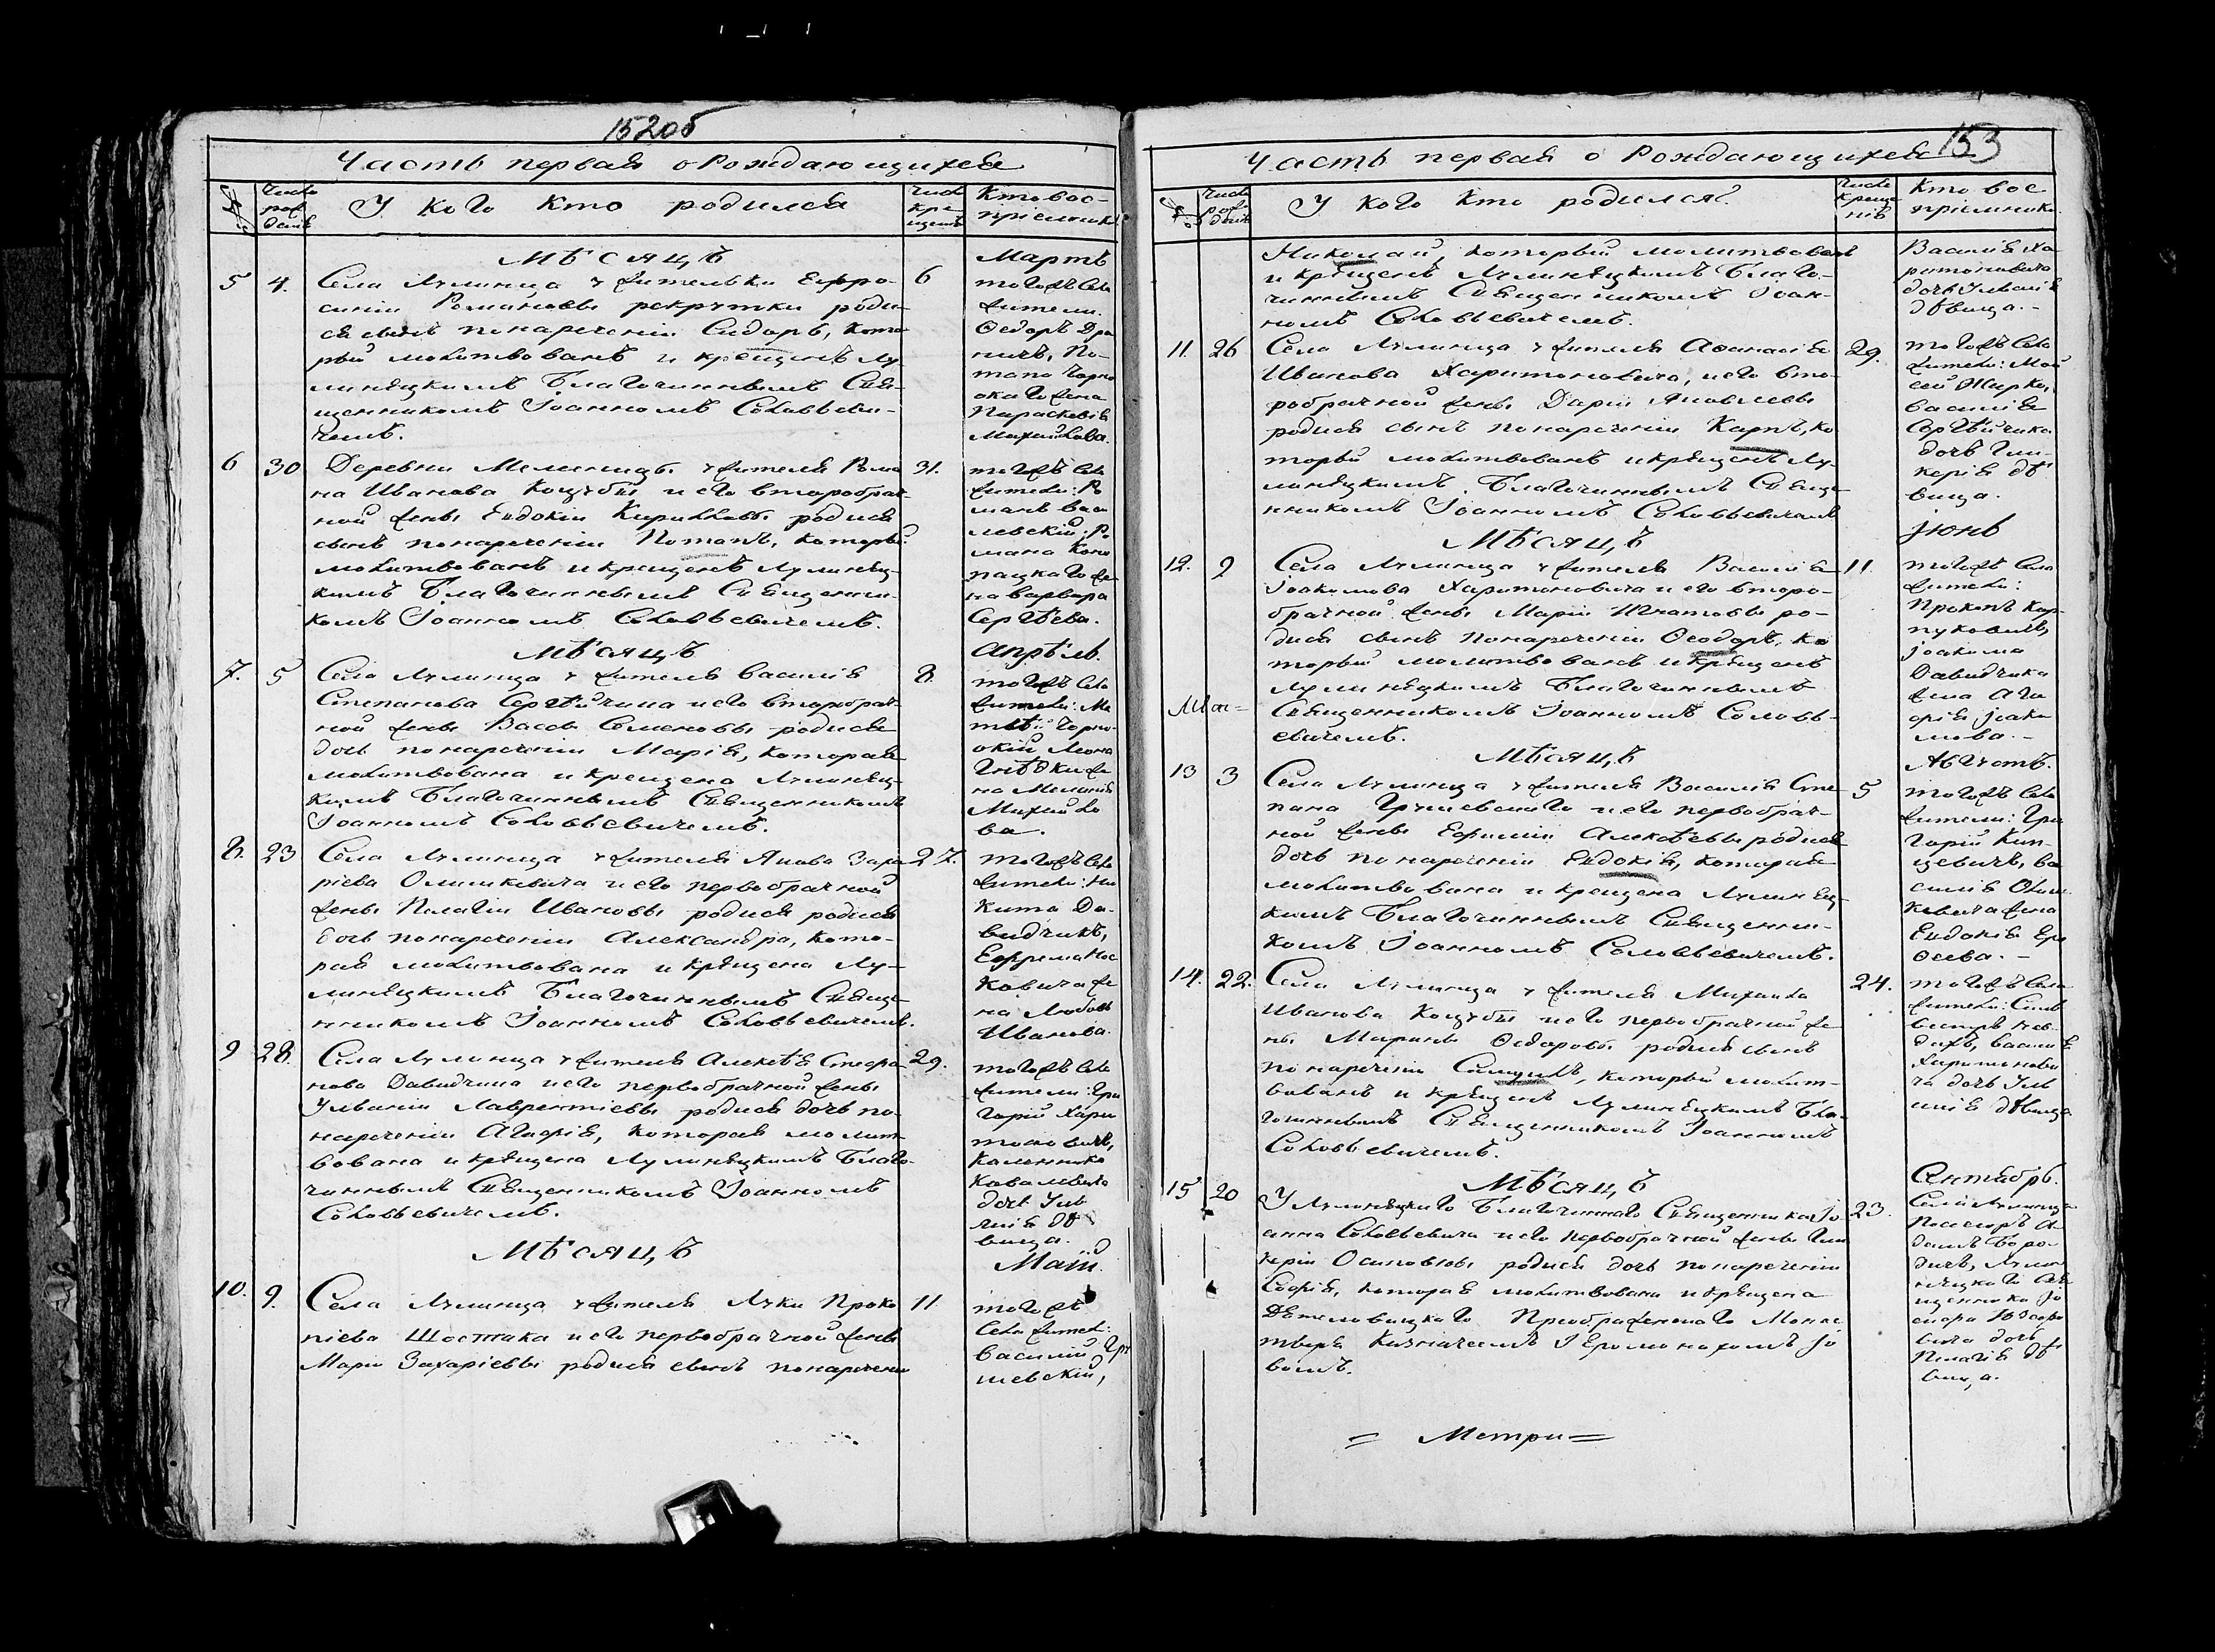 152об
Часть первая о Рождающихся
№ Число рождения У кого кто родился Число крещения Кто воспріемники
МѢСЯЦЪ Мартъ
5 4. 6
Села Лулинца у жительки Ефро-
синіи Романовы рекрутки роди-
ся сынъ по наречении Сидоръ, кото-
рый молитвованъ и крещенъ Лу-
линѣцкимъ Благочиннымъ Свя-
щенникомъ Іоанномъ Соловьеви-
чемъ.
того жъ села
жители:
Ѳедоръ Дра
ничъ, По-
тапа Чорно
окаго жена
Параскевія
Михайлова.
6 30 31.
Деревни Мелесницы жителя Рома
на Иванова Коцубы и его второбрач-
ной жены Евдокіи Кирилловы родися
сынъ по наречении Потапъ, который
молитвованъ и крещенъ Лулинѣц-
кимъ Благочиннымъ Священни-
комъ Іоанномъ Соловьевичемъ.
того жъ села
жители: Ро
манъ Васи
левскій, Ро
мана Коно
пацкаго же
на Варвара
Сергѣева.
МѢСЯЦЪ Апрѣль.
7. 5 8.
Села Лулинца у жителя Василія
Степанова Сергѣйчика и его второбрач-
ной жены Васы Семеновы родися
дочь по наречении Марія, которая
молитвована и крещена Лулинѣц-
кимъ Благочиннымъ Священникомъ
Іоанномъ Соловьевичемъ.
того жъ села
жители: Ма
твѣй Чорно
окій, Леона
Гнѣдки же
на Меланія
Михайло
ва.
8. 23 27.
Села Лулинца у жителя Якова Заха
ріева Олишкевича и его первобрачной
жены Пелагіи Ивановы родися родися
дочь по наречении Александра, кото-
рая молитвована и крещена Лу-
линѣцкимъ Благочиннымъ Свяще-
нникомъ Іоанномъ Соловьевичемъ.
того жъ села
жители: Ни
кита Да-
видчикъ,
Ефрема Нос
ковича же
на Любовь
Иванова.
9 28. 29.
Села Лулинца у жителя Алексѣя Стефа
нова Давидчика и его первобрачной жены
Ульяніи Лаврентіевы родися дочь по
наречении Агафія, которая молит
вована и крещена Лулинѣцкимъ Благо-
чиннымъ Священникомъ Іоанномъ
Соловьевичемъ.
того жъ села
жители: Гри
горій Хари
тоновичъ,
Калинника
Ковалевича
дочь Улья
нія дѣ
вица.
МѢСЯЦЪ Маій.
10. 9. 11
Села Лулинца у жителя Луки Проко
піева Шостака и его первобрачной жены
Маріи Захаріевы родися сынъ по наречении
того жъ
села жител:
Василій Гру
шевскій,
153
Часть первая о Рождающихся
№ Число рождения У кого кто родился. Число крещенія Кто воспріемники.
Николай, который молитвованъ
и крещенъ Лулинѣцкимъ Благо-
чиннымъ Священникомъ Іоан-
номъ Соловьевичемъ.
Василія Ха
ритоновича
дочь Ульянія
дѣвица.
11. 26 29.
Села Лулинца у жителя Аѳанасія
Иванова Харитоновича, и его вто-
робрачной жены Даріи Яковлевы
родися сынъ по наречении Карпъ, ко
торый молитвованъ и крещенъ Лу-
линѣцкимъ Благочиннымъ Свяще-
нникомъ Іоанномъ Соловьевичемъ
того жъ села
жители: Мои
сей Жирко,
Василія
Сергѣйчика
дочь Гли-
керія дѣ
вица.
МѢСЯЦЪ Іюнь
12. 9 11.
Села Лулинца у жителя Василія
Іоакимова Харитоновича и его второ-
брачной жены Маріи Игнатовы ро-
дися сынъ по наречении Ѳеодоръ, ко
торый молитвованъ и крещенъ
Лулинѣцкимъ Благочиннымъ
Священникомъ Іоанномъ Соловь-
евичемъ.
того жъ села
жители:
Прокопъ Кар-
пуковичъ,
Іоакима
Давидчика
жена Ага
фія Іоаки
мова.
МѢСЯЦЪ Августъ.
13 3 5
Села Лулинца у жителя Василія Сте
пана Грушевскаго и его первобрач-
ной жены Ефиміи Алексѣевы родися
дочь по наречении Евдокія, которая
молитвована и крещена Лулинѣц-
кимъ Благочиннымъ Священни-
комъ Іоанномъ Соловьевичемъ.
того жъ села
жители: Гри
горій Кун-
цевичъ, Ва
силія Олиш
кевича жена
Евдокія Еро
ѳеева.
14. 22. 24.
Села Лулинца у жителя Михаила
Иванова Коцубы и его первобрачной же
ны Марины Ѳедоровы родися сынъ
по наречении Самуилъ, который молит-
вованъ и крещенъ Лулинѣцкимъ Бла-
гочиннымъ Священникомъ Іоанномъ
Соловьевичемъ.
того жъ села
жители: Силь
вестръ
Василія
Харитонови
ча дочь Улья
нія дѣвица
МѢСЯЦЪ Сентябрь.
15 20 23.
У Лулинѣцкаго Благочиннаго Священника Іо
анна Соловьевича и его первобрачной жены Гли
керіи Осиповны родися дочь по наречении
Софія, которая молитвована и крещена
Дѣтеловицкаго Преображенскаго Монас
тыря Казначеемъ Іеромонахомъ Іо
вомъ.
Села Лулинца
Посесоръ А-
дамъ Боро-
дичъ, Лули
нѣцкаго Свя
щенника Іо
дочь
Пелагія дѣ
вица.
= Метри =